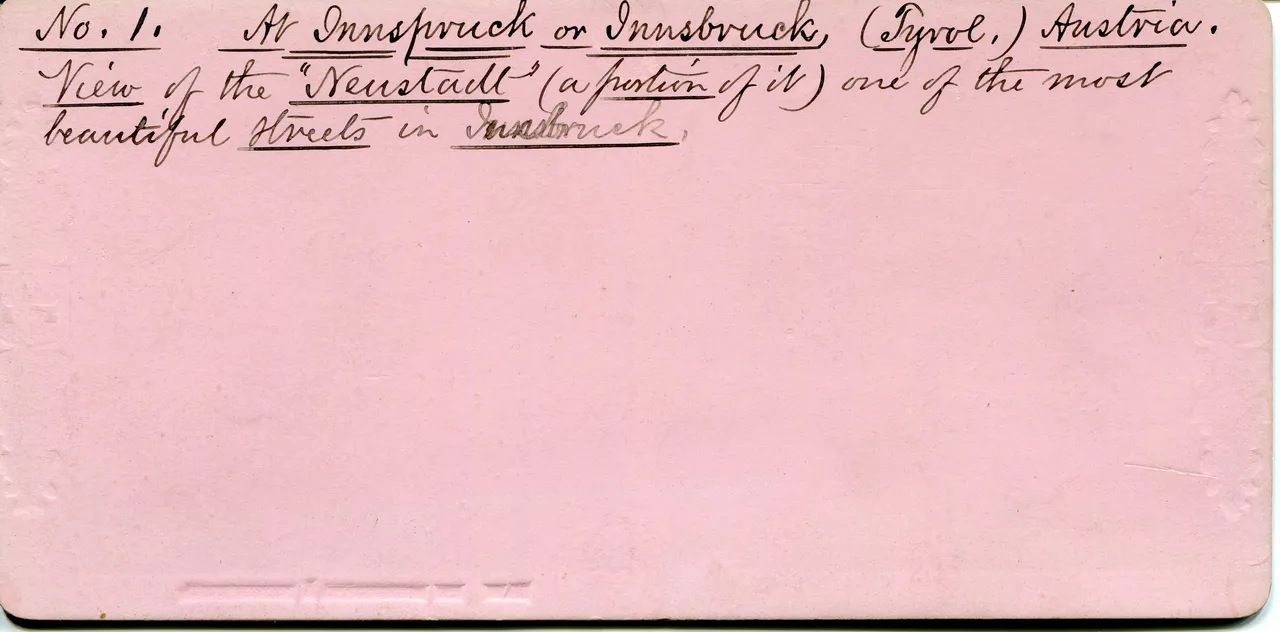 No. 1. At Innspruck or Innsbruck, (Tyrol.) Austria.
View of the "Neustadt" (a portion of it) one of the most
beautiful streets in Innsbruck.